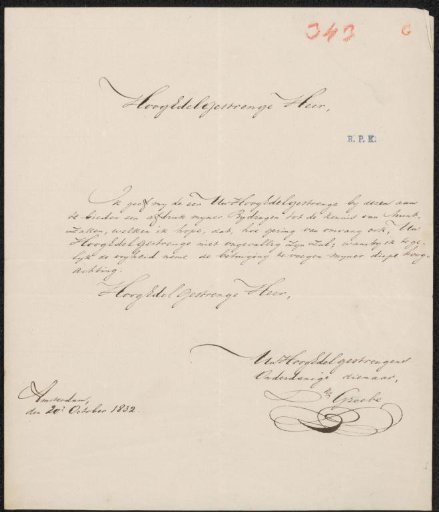 343 G
HoogEdelgestrenge Heer,
R. P. K.
Ik geef my de eer UwHoogEdelgestrenge by dezen aan
te bieden een afdruk myner Bydragen tot de kennis van Munt-
zaken, welken ik hope, dat, hoe gering van omvang ook, Uw
HoogEdelgestrenge niet ongevallig zyn zal; waarby ik tege-
lyk de vryheid neme de betuiging te voegen myner diepe hoog-
achting.
HoogEdelgestrenge Heer,
UwHoogEdelgestrengens
Onderdanige dienaar,
Dk. Groebe
Amsterdam,
den 20 October 1832